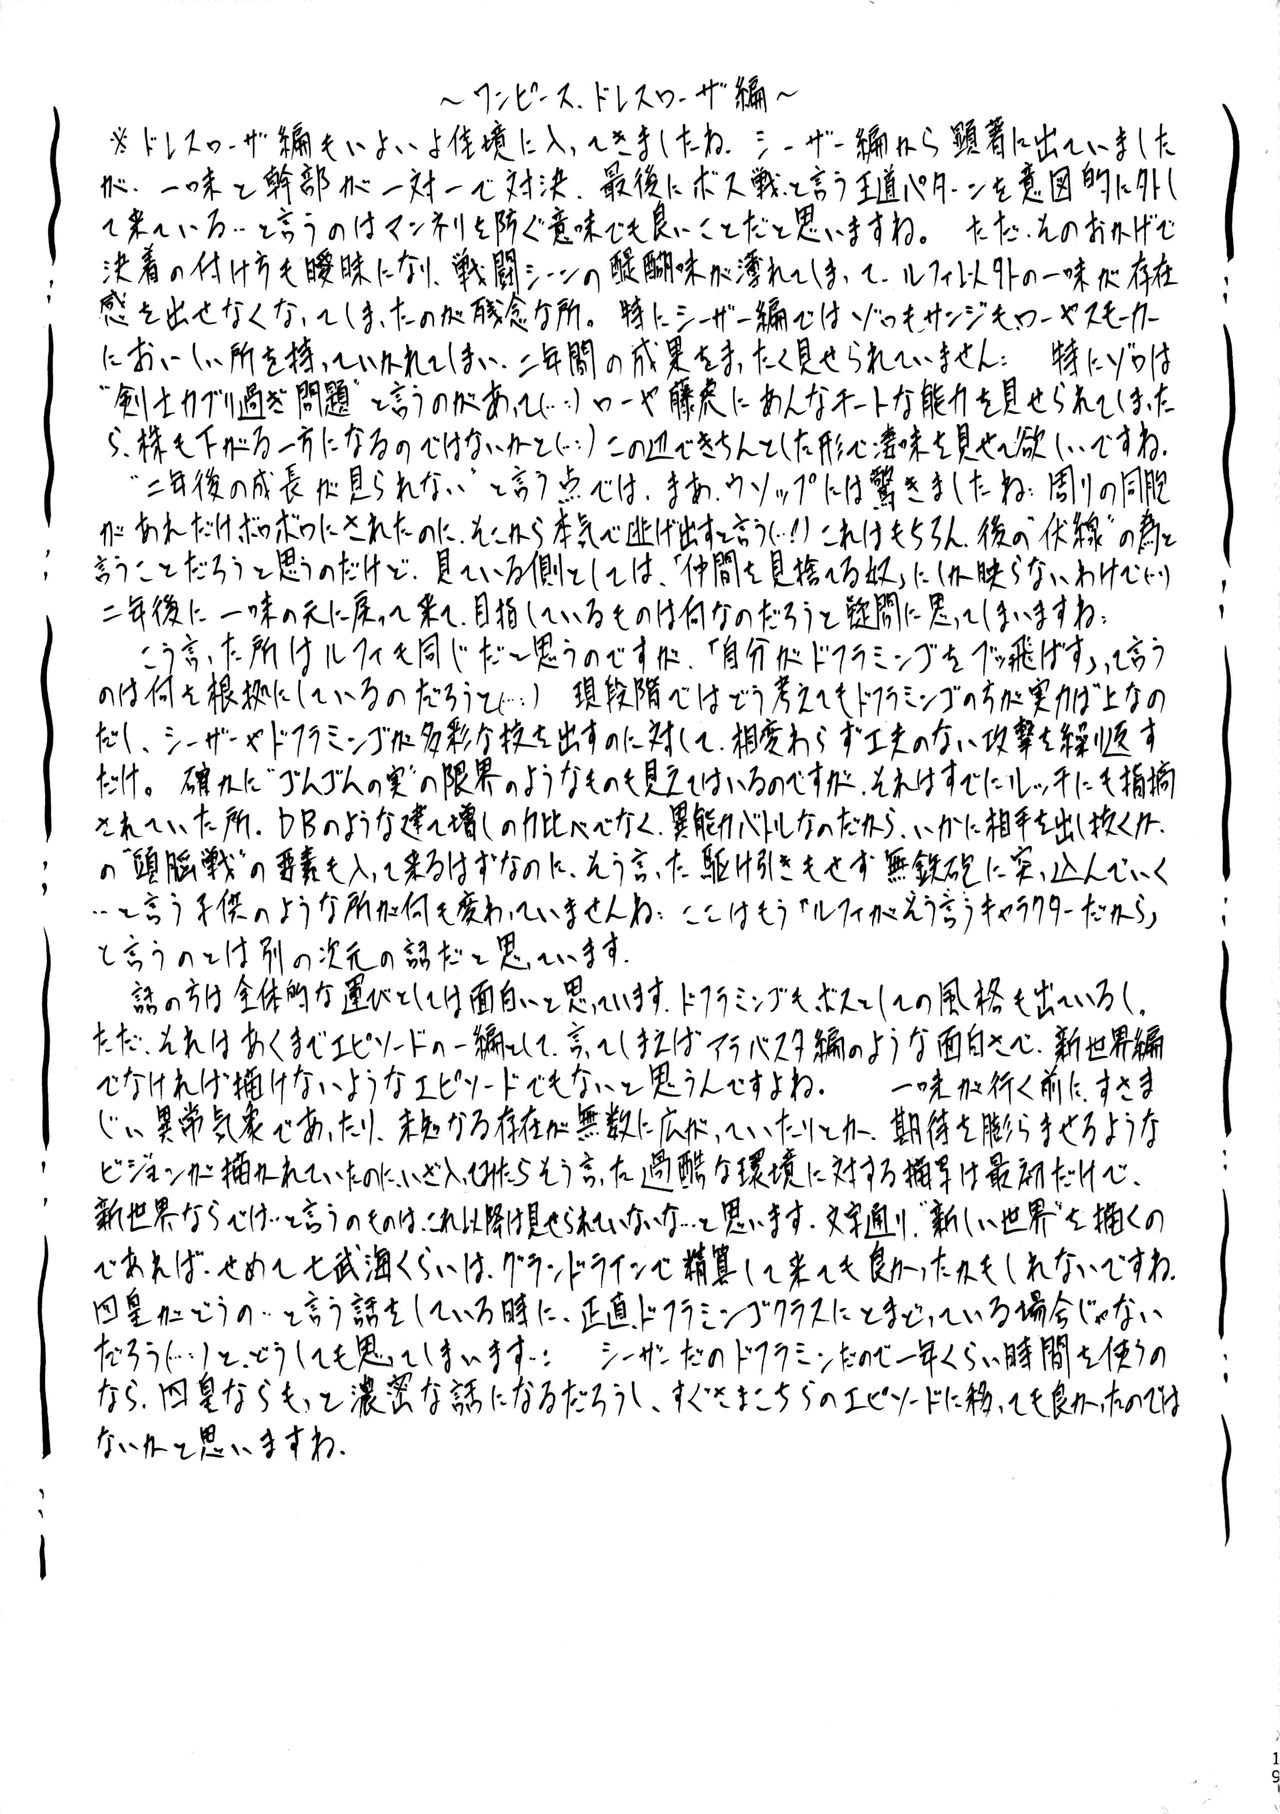 ～ワンピース.ドレスローザ編～
※ドレスローザ編もいよいよ佳境に入ってきましたね. シーザー編から顕著に出ていました
が. 一味と幹部が一対一で対決. 最後にボス戦と言う王道パターンを意図的に外し
て来ている‥と言うのはマンネリを防ぐ意味でも良いことだと思いますね。 ただ.そのおかげで
決着の付け方も曖昧になり、戦闘シーンの醍醐味が薄れてしまって. ルフィ以外の一味が存在
感を出せなくなってしまったのが残念な所。 特にシーザー編ではゾロもサンジもローやスモーカー
においしい所を持っていかれてしまい. 二年間の成果をまったく見せられていません: 特にゾロは
“剣士カブリ過ぎ問題”と言うのがあって(…:) ローや藤虎にあんなチートな能力を見せられてしまった
ら、株も下がる一方になるのではないかと(…:) この辺できちんとした形で凄味を見せて欲しいですね.
“二年後の成長が見られない”と言う点では、まあ.ウソップには驚きましたね: 周りの同胞
があれだけボロボロにされたのに.そこから本気で逃げ出すと言う(…!) これはもちろん. 後の“伏線”の為と
言うことだろうと思うのだけど. 見ている側としては、「仲間を見捨てる奴」にしか映らないわけで(…)
二年後に一味の元に戻って来て.目指しているものは何なのだろうと疑問に思ってしまいますね:
こう言った所はルフィも同じだと思うのですが.「自分がドフラミンゴをブッ飛ばす」って言う
のは何を根拠にしているのだろうと(…:) 現段階ではどう考えてもドフラミンゴの方が実力は上なの
だし、シーザーやドフラミンゴが多彩な技を出すのに対して. 相変わらず工夫のない攻撃を繰り返す
だけ。 確かに“ゴムゴムの実”の限界のようなものも見えてはいるのですが. それはすでにルッチにも指摘
されていた所。DBのような建て増しの力比べでなく. 異能力バトルなのだから、いかに相手を出し抜くか.
の“頭脳戦”の要素も入って来るはずなのに. そう言った駆け引きもせず無鉄砲に突っ込んでいく
‥と言う子供のような所が何も変わっていませんね: ここはもう「ルフィがそう言うキャラクターだから」
と言うのとは別の次元の話だと思っています.
話の方は全体的な運びとしては面白いと思っています. ドフラミンゴもボスとしての風格も出ているし。
ただ. それはあくまでエピソードの一編として. 言ってしまえばアラバスタ編のような面白さで. 新世界編
でなければ描けないようなエピソードでもないと思うんですよね. 一味が行く前に.すさま
じい異常気象であったり、未知なる存在が無数に広がっていたりとか. 期待を膨らませるような
ビジョンが描かれていたのに.いざ入ってみたらそう言った過酷な環境に対する描写は最初だけで、
新世界ならでは‥と言うのものは.これ以降は見せられていないな…と思います. 文字通り.“新しい世界”を描くの
であれば. せめて七武海くらいは. グランドラインで精算して来ても良かったかもしれないですね.
四皇がどうの‥と言う話をしている時に、正直.ドフラミンゴクラスにとまどっている場合じゃない
だろう(…:)と.どうしても思ってしまいます…: シーザーだのドフラミンだので一年くらい時間を使うの
なら. 四皇ならもっと濃密な話になるだろうし、すぐさまこちらのエピソードに移っても良かったのでは
ないかと思いますね.